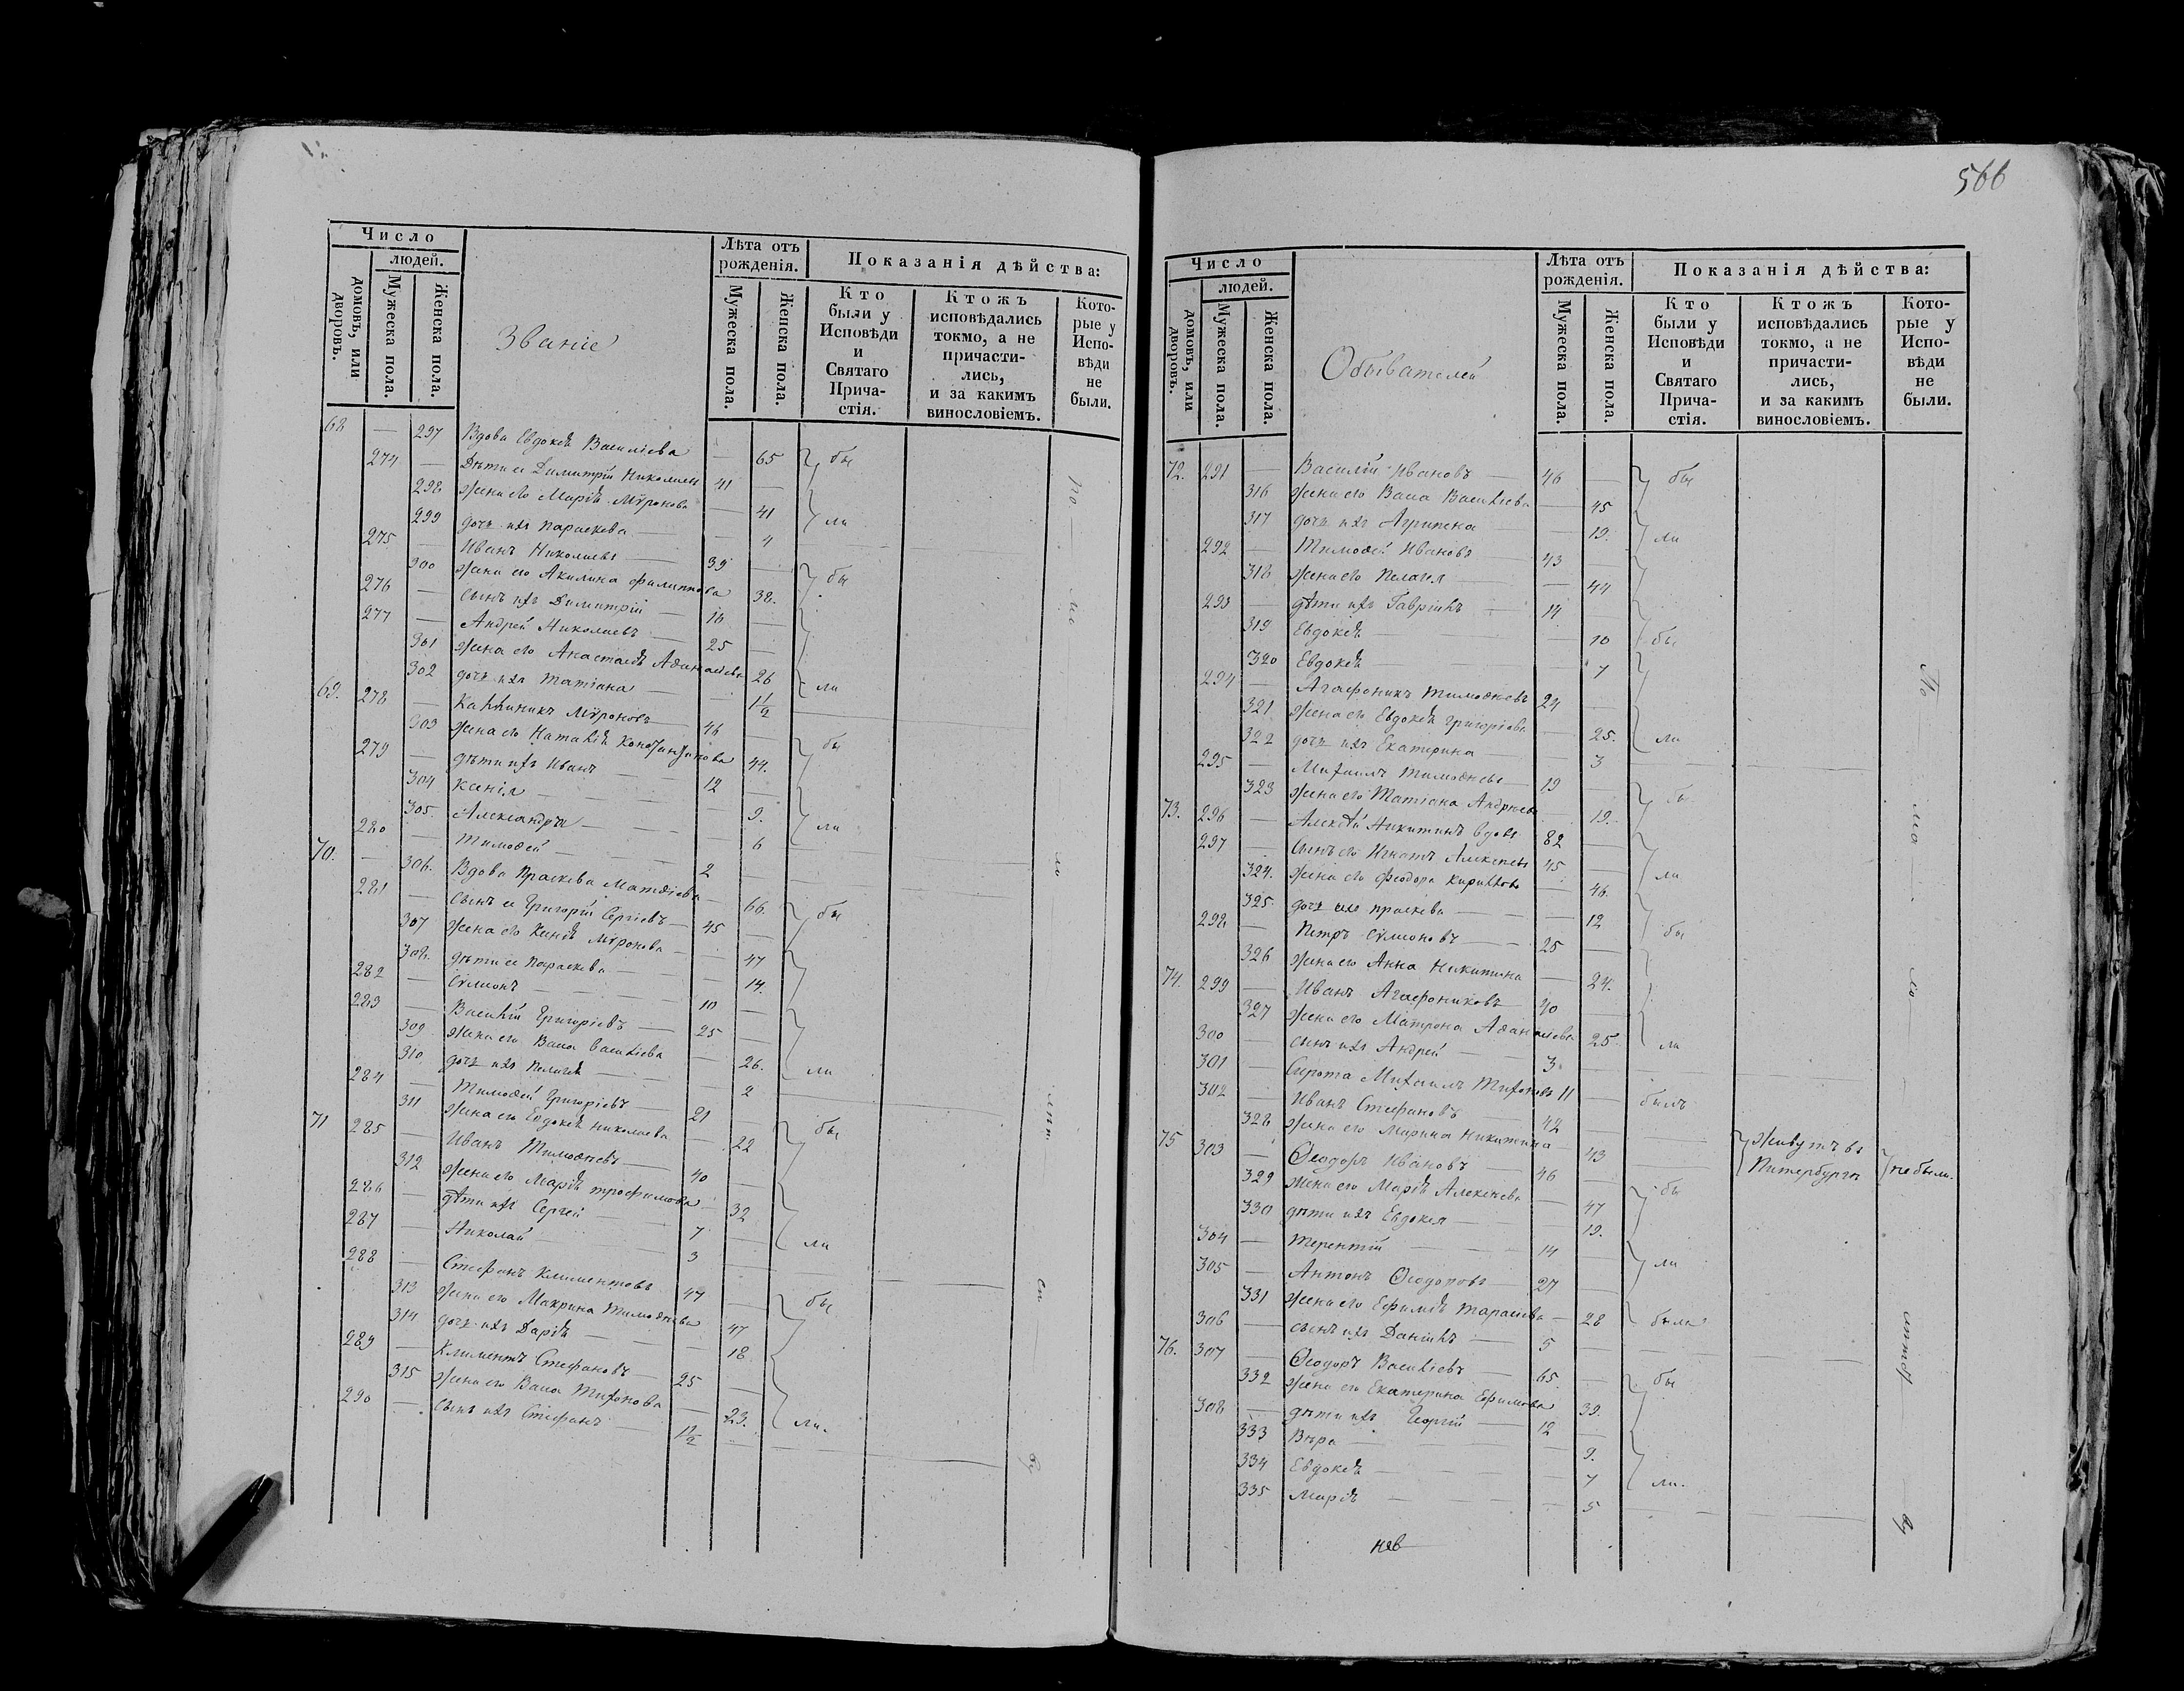 566
Число
людей.
домовъ, или дворовъ.
Мужеска пола.
Женска пола.
Званіе
Лѣта отъ рожденія.
Мужеска пола.
Женска пола.
Показанія дѣйства:
Кто были у Исповѣди и Святаго Прича-стія.
Ктожъ исповѣдались токмо, а не причасти-лись, и за какимъ винословіемъ.
Кото-рые у Испо-вѣди не были.
68 — 297 Вдова Евдокія Василіева — 65 бы
274 — Дѣти ея Димитрій Николаевъ 41 —
298 жена его Марія Мѵронова — 41 ли
299 дочь ихъ Параскева — 4
275 — Иванъ Николаевъ — 39 —
300 жена его Акилина Филиппова 38. бы
276 — сынъ ихъ Димитрій — 16 —
277 — Андрей Николаевъ — 25 —
301 жена его Анастасія Аѳанасіева 26 ли
302 дочь ихъ Татіана — 1 1/2
69. 278 — Каллиникъ Мѵроновъ 46 —
303 жена его Наталія Константинова 44. бы
279 — дѣти ихъ Иванъ — 12 —
304 Ксенія — 9.
305. Александра — 6 ли
280 — Тимоѳей — 2 —
70. — 306. Вдова Праскева Матѳіева — 66. бы
281 — сынъ ея Григорій Сергіевъ — 45 —
307 жена его Ксенія Мѵронова — 47
308. дѣти ея Параскева — 14.
282 — Сѵмеонъ — 10 —
283 — Василій Григоріевъ — 25 —
309 жена его Васса Василіева — 26. ли
310 дочь ихъ Пелагія — 2
284 — Тимоѳей Григоріевъ — 21 —
311 жена его Евдокія Николаева — 22 бы
71 285 — Иванъ Тимоѳѣевъ — 40 —
312 жена его Марія Трофимова — 32
286 — дѣти ихъ Сергей — 7 — ли
287 — Николай — 3 —
288 — Стефанъ Климентовъ 47 —
313 жена его Макрина Тимоѳѣева 47 бы
314 дочь ихъ Дарія — 18
289 — Климентъ Стефановъ — 25 —
315 жена его Васса Тихонова — 23. ли.
290 — сынъ ихъ Стефанъ 1 1/2 —
Число
людей.
домовъ, или дворовъ.
Мужеска пола.
Женска пола.
Обывателей
Лѣта отъ рожденія.
Мужеска пола.
Женска пола.
Показанія дѣйства:
Кто были у Исповѣди и Святаго Прича-стія.
Ктожъ исповѣдались токмо, а не причасти-лись, и за какимъ винословіемъ.
Кото-рые у Испо-вѣди не были.
72. 291 — Василій Ивановъ — 46 — бы
316 жена его Васса Василіева — 45
317 дочь ихъ Агрипена — 19. ли
292 — Тимоѳей Ивановъ — 43 —
318 жена его Пелагея — 44
293 — дѣти ихъ Гавріилъ — 14 —
319 Евдокія — 10 бы
320 Евдокія — 7
294 — Агафоникъ Тимоѳѣевъ 24 —
321 жена его Евдокія Григоріева — 25. ли
322 дочь ихъ Екатерина — 3
295 — Михаилъ Тимоѳѣевъ — 19 —
323 жена его Татіана Андрѣева — 19. бы
73. 296 — Алексѣй Никитинъ вдовъ 82 —
297 — сынъ его Игнатъ Алексѣевъ 45 —
324. жена его Феодора Кириллова — 46. ли
325. дочь ихъ Праскева — 12
298 — Петръ Сѵмеоновъ — 25 — бы
326 жена его Анна Никитина — 24.
74. 299 — Иванъ Агафониковъ — 40 —
327 жена его Матрона Аѳанасіева 25 ли
300 — сынъ ихъ Андрей — 3 —
301 — Сирота Михаилъ Тихоновъ 11 — былъ
302 — Иванъ Стефановъ — 42 —
328 жена его Марина Никитина — 43 Живутъ въ Питербургѣ не были.
75 303 — Ѳеодоръ Ивановъ — 46 —
329 жена его Марія Алексѣева — 47 бы
330 дѣти ихъ Евдокея — 19.
304 — Терентій — 14 —
305 — Антонъ Ѳеодоровъ — 27 — ли
331 жена его Ефимія Тарасіева — 28 была
306 — сынъ ихъ Даніилъ — 5 —
76. 307 — Ѳеодоръ Василіевъ — 65 —
332 жена его Екатерина Ефимова 39. бы
308 — дѣти ихъ Георгій — 12 —
333 Вѣра — 9.
334 Евдокія — 7 ли.
335 Марія — 5